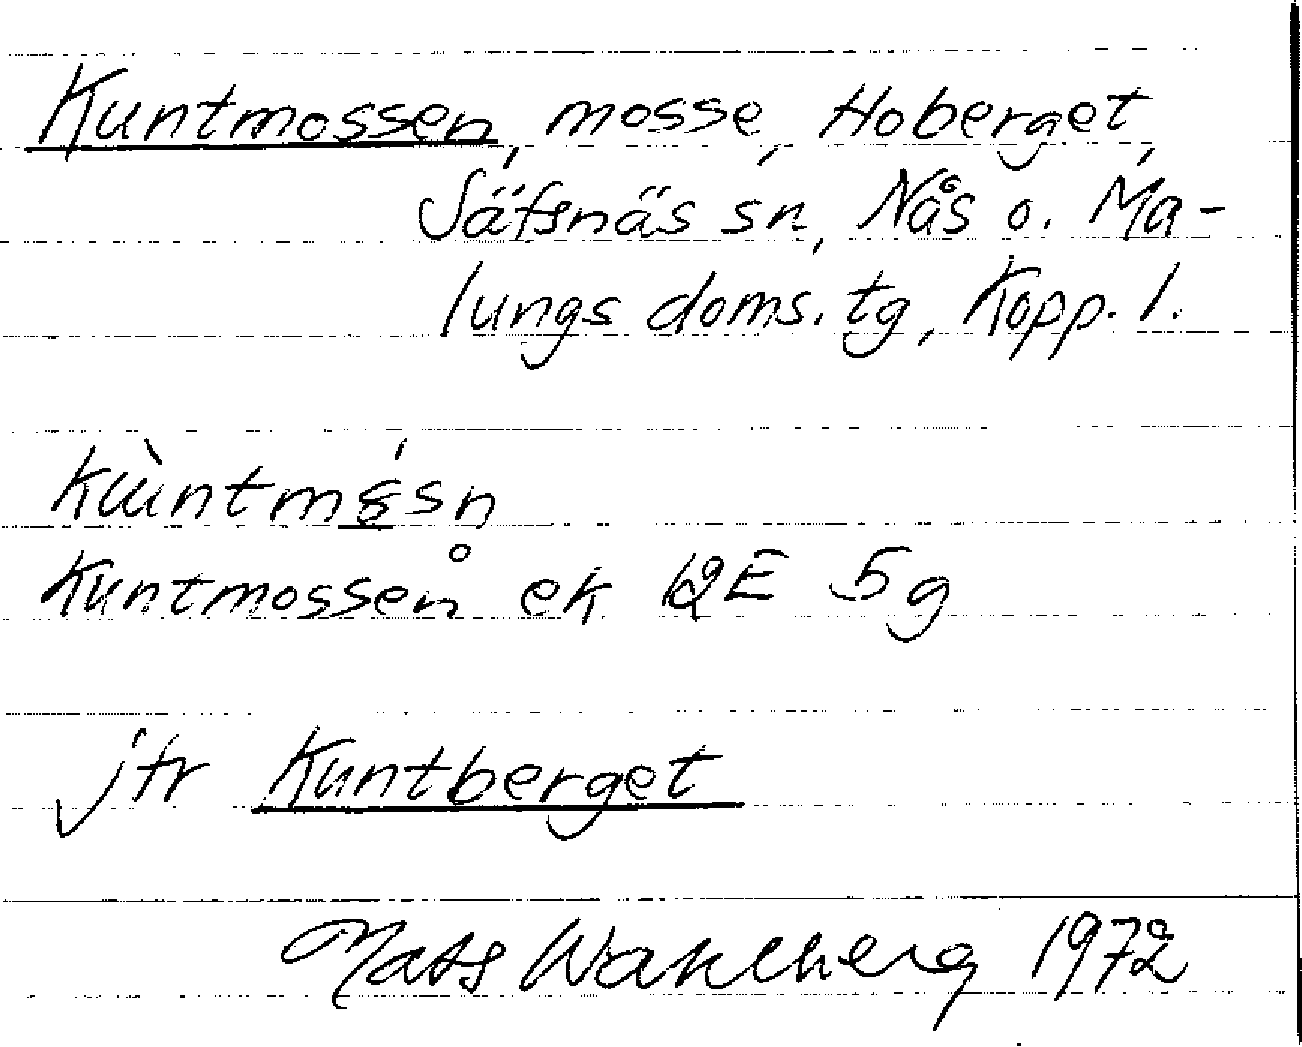 Kuntmossen, mosse, Hoberget,
Säfsnäs sn, Nås o. Ma-
lungs doms. tg, Kopp. l.
Kuntmossen ek 12E 5g
jfr Kuntberget
Mats Wahlberg 1972